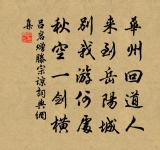 華州回道人
來到岳陽城
別我游何處
秋空一劍橫
呂岩贈滕宗諒詞典網
集